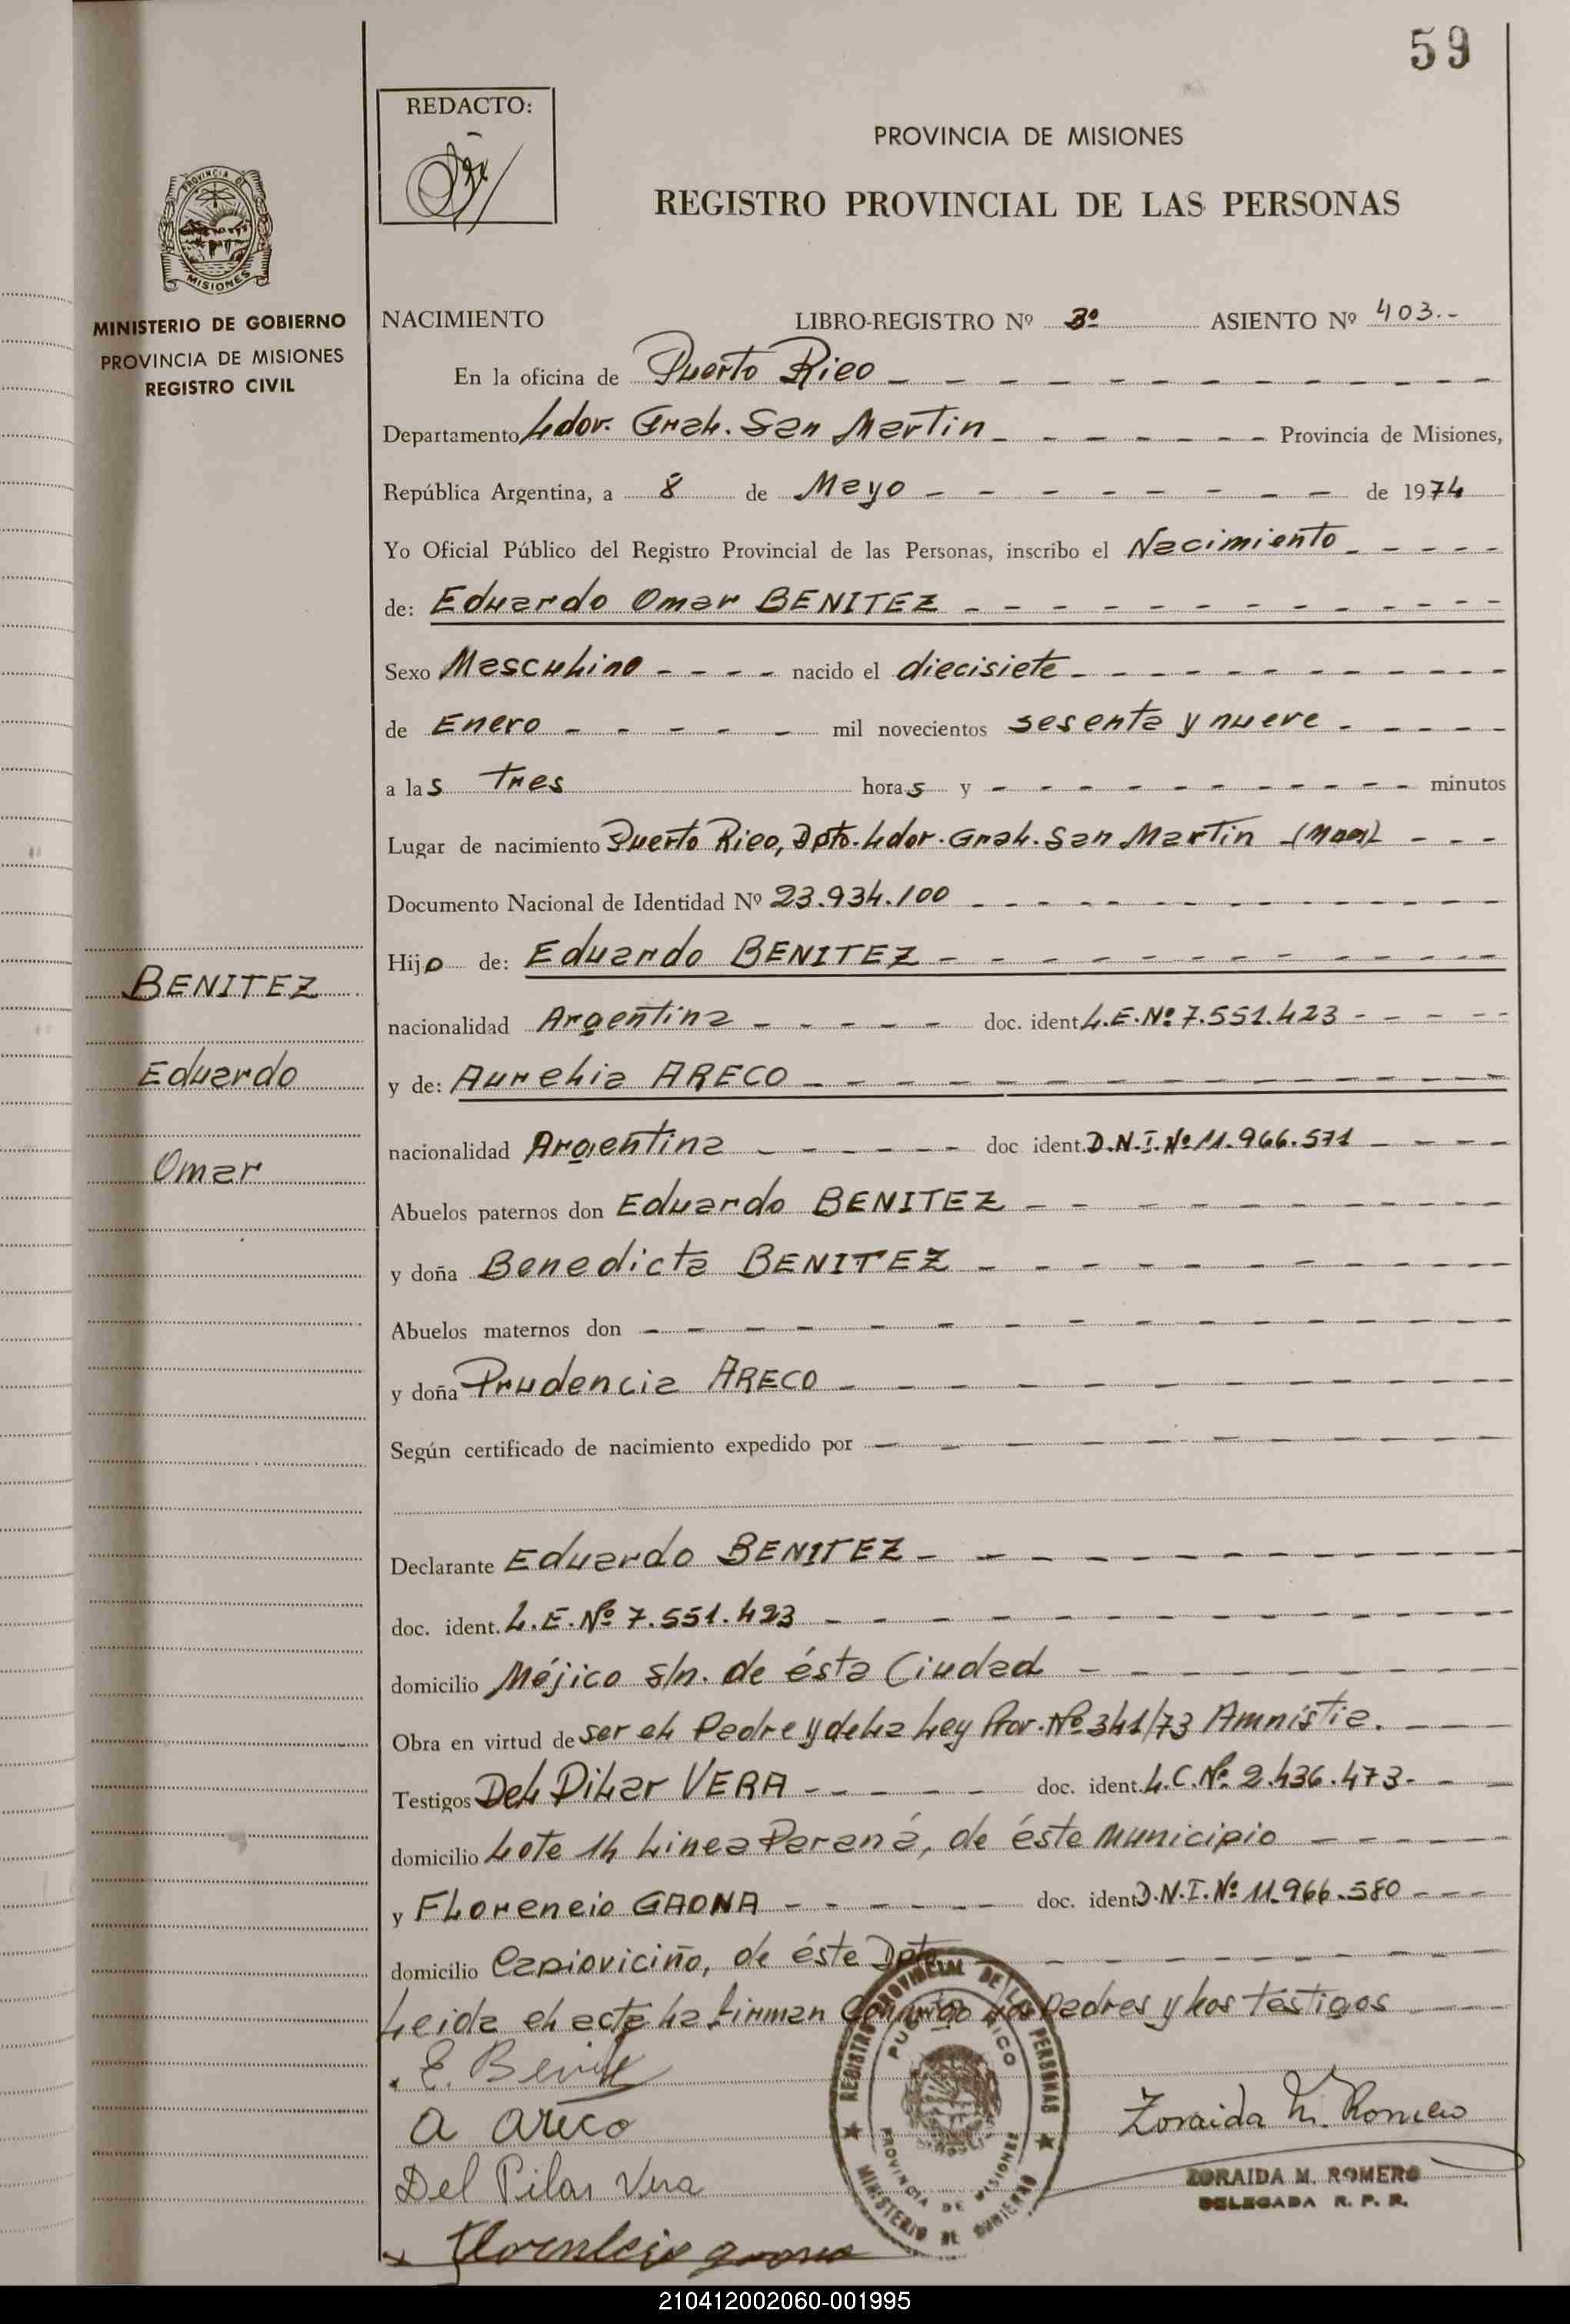 59
REDACTO:
PROVINCIA DE MISIONES
REGISTRO PROVINCIAL DE LAS PERSONAS
PROVINCIA DE
MISIONES
MINISTERIO DE GOBIERNO
PROVINCIA DE MISIONES
REGISTRO CIVIL
NACIMIENTO LIBRO-REGISTRO Nº 3º ASIENTO Nº 403.-
En la oficina de Puerto Rico
Departamento Ldor. Gral. San Martin Provincia de Misiones,
República Argentina, a 8 de Mayo de 1974
Yo Oficial Público del Registro Provincial de las Personas, inscribo el Nacimiento
de: Eduardo Omar BENITEZ
Sexo Masculino nacido el diecisiete
de Enero mil novecientos sesenta y nueve
a las tres horas y minutos
Lugar de nacimiento Puerto Rico, Dpto. Ldor. Gral. San Martin
Documento Nacional de Identidad Nº 23.934.100
Hijo de: Eduardo BENITEZ
BENITEZ
nacionalidad Argentina doc. ident. L.E.Nº 7.551.423
Eduardo
y de: Aurelia ARECO
nacionalidad Argentina doc ident. D.N.I.Nº 11.966.571
Omar
Abuelos paternos don Eduardo BENITEZ
y doña Benedicta BENITEZ
Abuelos maternos don
y doña Prudencia ARECO
Según certificado de nacimiento expedido por
Declarante Eduardo BENITEZ
doc. ident. L.E.Nº 7.551.423
domicilio Méjico s/n. de ésta Ciudad
Obra en virtud de ser el Padre y de la Ley Prov. Nº 341/73 Amnistia.
Testigos Del Pilar VERA doc. ident. L.C.Nº 2.436.473.
domicilio Lote 14 Linea Paraná, de éste Municipio
y Florencio GAONA doc. ident. D.N.I.Nº 11.966.580
domicilio Capioviciño, de éste Dpto.
Leida el acta la firman Conmigo los Padres y los testigos
E. Benitez
a areco
Zoraida M. Romero
Del Pilar Vera
ZORAIDA M. ROMERO
DELEGADA R. P. P.
Florencio gaona
REGISTRO PROVINCIAL DE LAS PERSONAS
PUERTO RICO
PROVINCIA DE MISIONES
MINISTERIO DE GOBIERNO
210412002060-001995